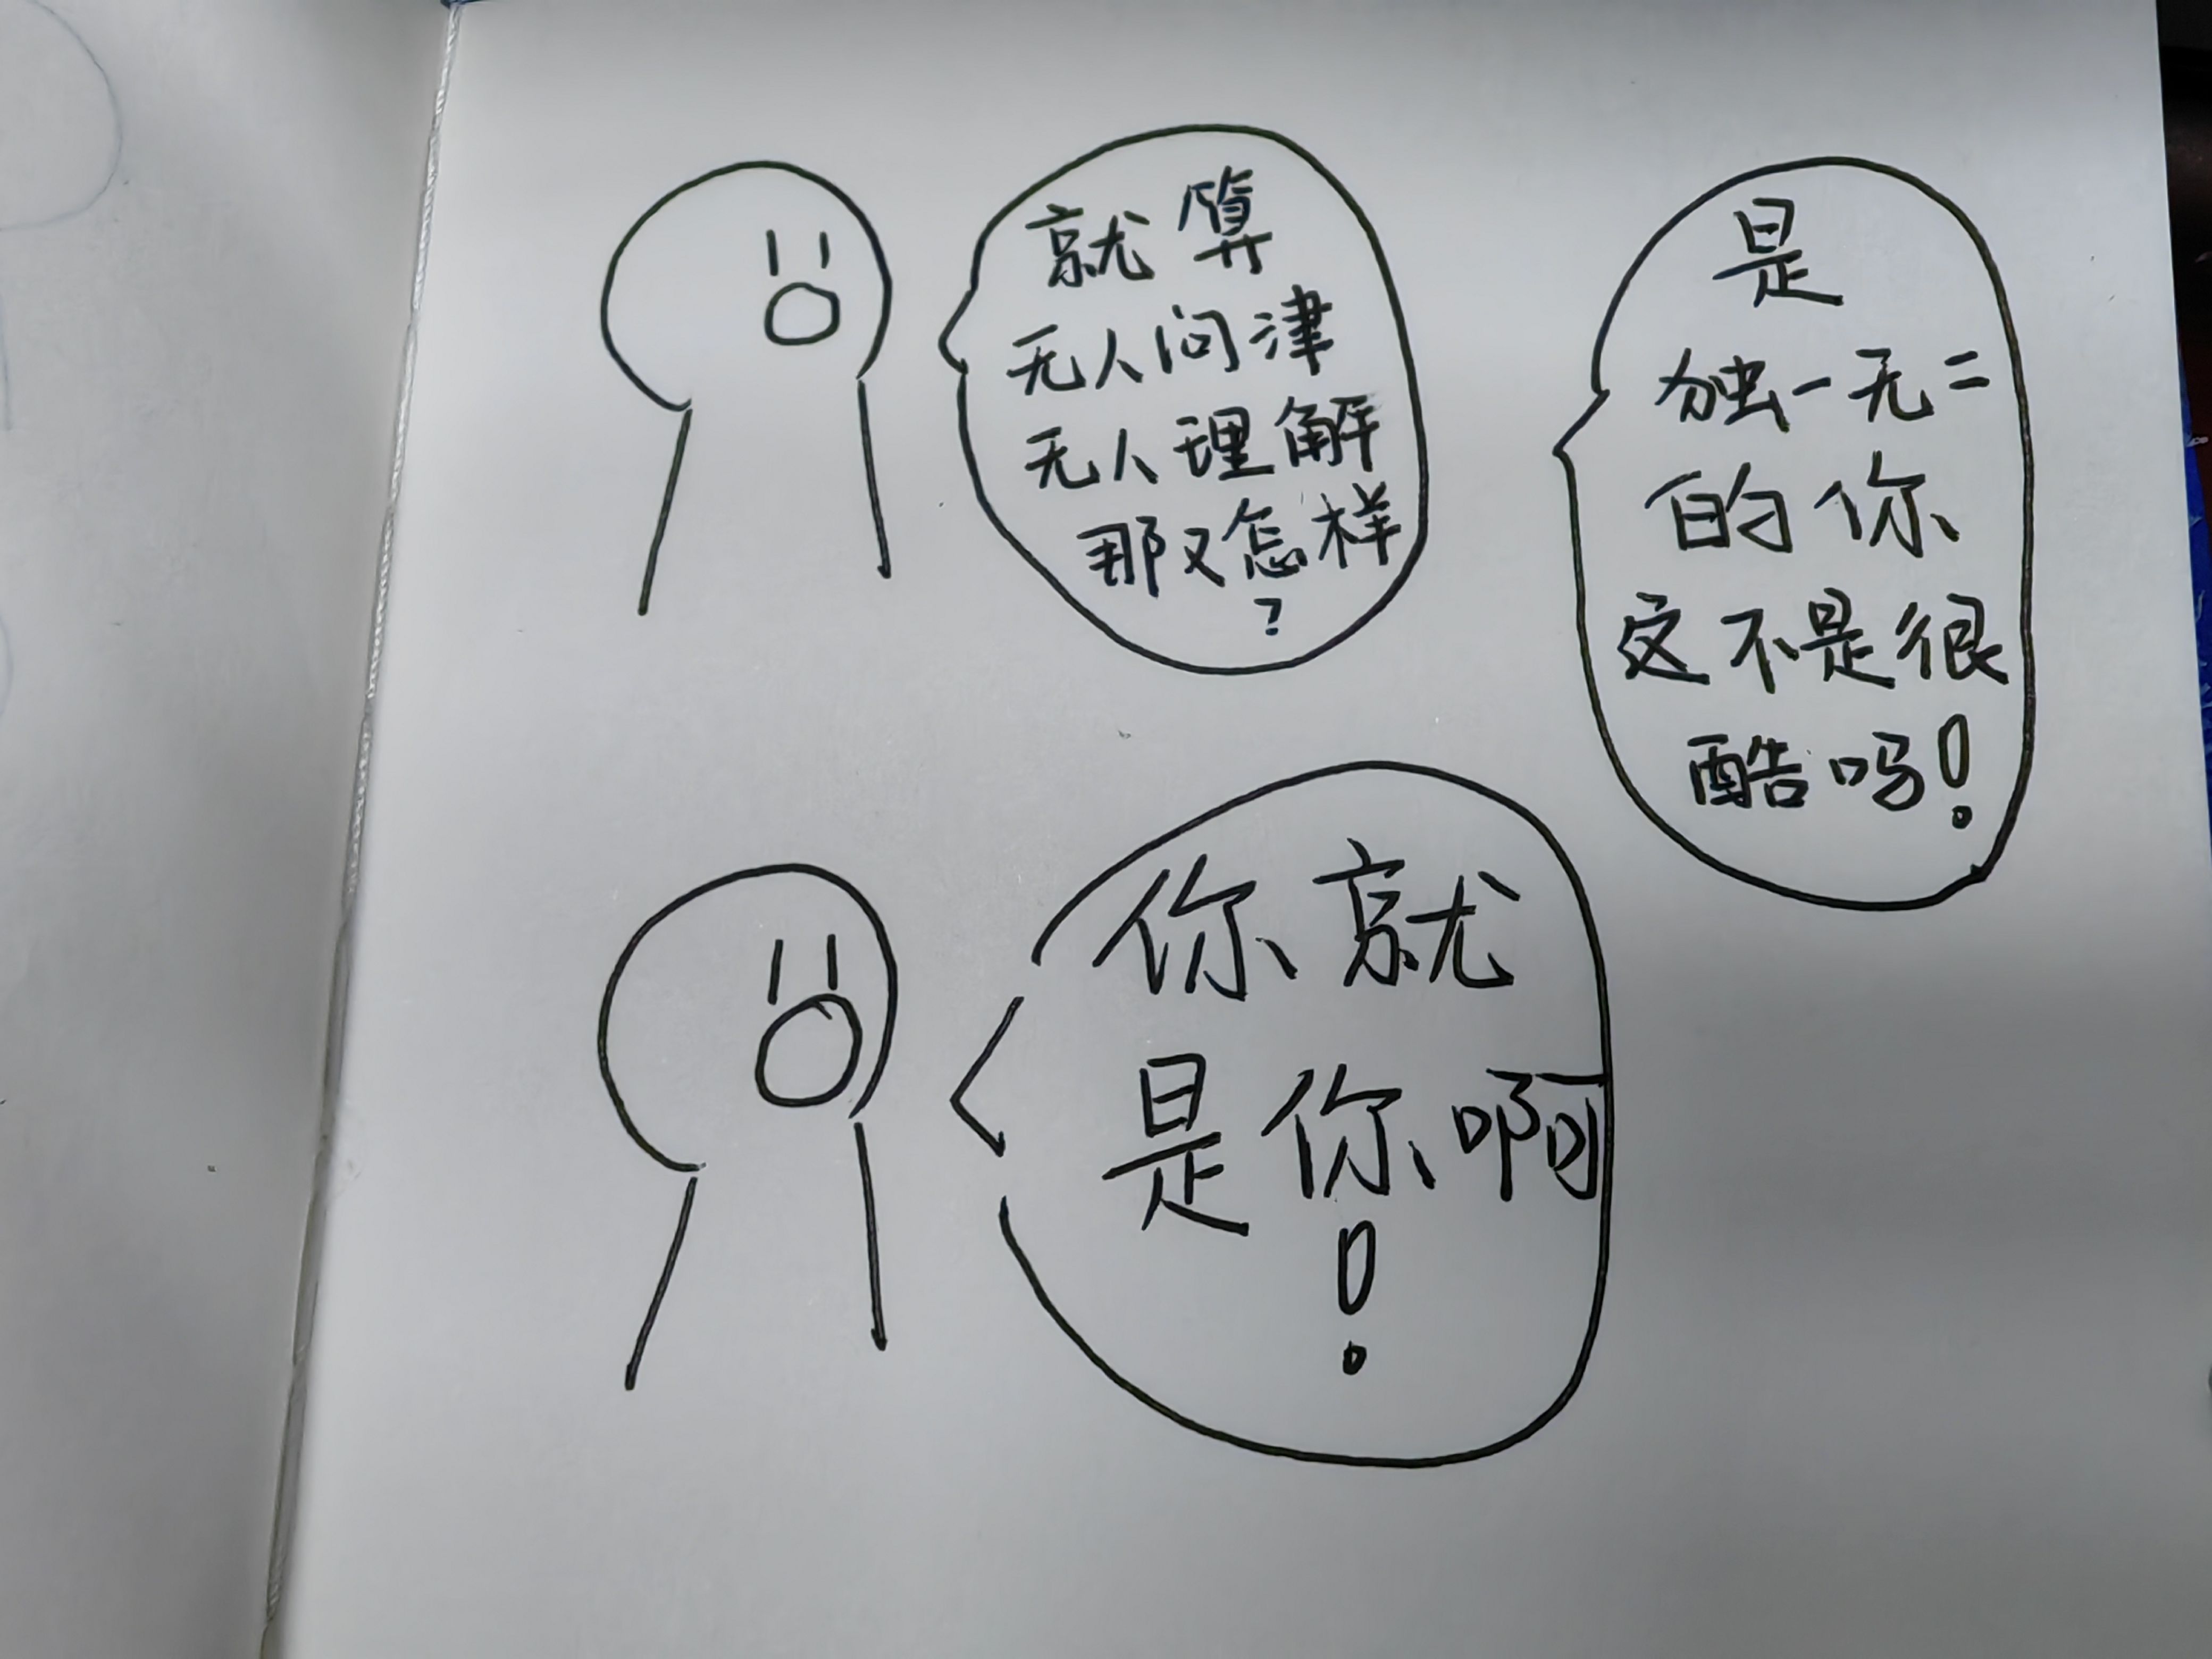 就算
无人问津
无人理解
那又怎样
?
你就
是你啊
!
是
独一无二
的你
这不是很
酷吗!